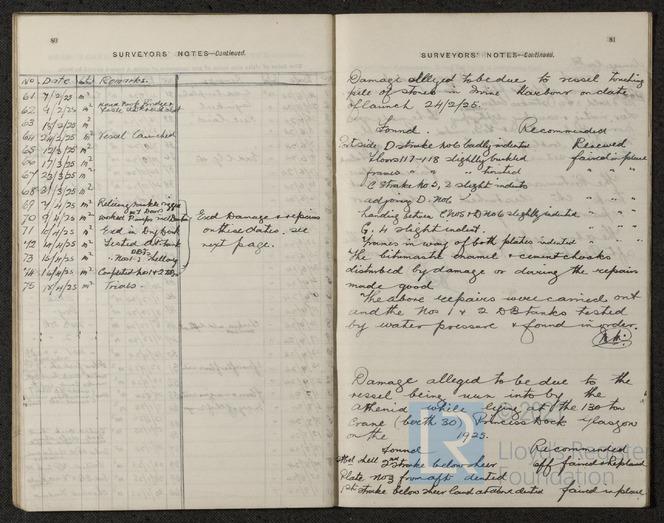 80
SURVEYORS' NOTES—Continued.
No Date Remarks.
61 7/2/25 m²
62 9/2/25 m²
63 18/2/25 m²
64 24/2/25 m² Vessel Launched
65 12/3/25 m²
66 17/3/25 m²
67 23/3/25 m²
68 31/3/25 m²
69 7/4/25 m²
70 9/4/25 m²
71 10/4/25 m² Exd in Dry Dock
72 10/4/25 m² Tested aft tank
73 15/4/25 m²
74 16/4/25 m² Completed No 1 & 2
75 18/4/25 m² Trials.
Exd Damage & repairs
on these dates. see
next page.
81
SURVEYORS' NOTES—Continued.
Damage alleged to be due to vessel touching
pile of stones in Irvine Harbour on date
of launch 24/2/25.
Found. Recommended
Port side D strake No 6 badly indented Renewed
Floors 117-118 slightly buckled faired in place
frames " " twisted " " "
C Strake No 2, 2 slight indents " " "
adjoining D. No 6 " " "
landing between C No 5 & D No 6 slightly indented " " "
G. 4 slight indent. " " "
Frames in way of both plates indented " " "
The bitumastic enamel & cement chocks
disturbed by damage or during the repairs
made good
The above repairs were carried out
and the Nos 1 & 2 DB tanks tested
by water pressure & found in order.
Damage alleged to be due to the
vessel being run into by the
Athenia while lying at the 130 ton
Crane (berth 30) Princess Dock Glasgow
on the 1925.
Found Recommended
2nd strake below sheer off faired & replaced
Plate No 3 from aft dented
1st strake below sheer dented faired in place
© 2021
LR
Lloyd's Register
Foundation